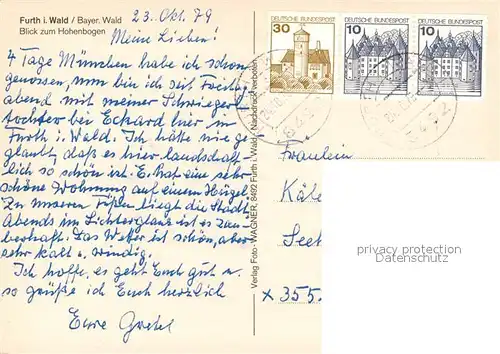 Furth i. Wald / Bayer. Wald
Blick zum Hohenbogen
23. Okt. 79
Meine Lieben!
4 Tage München habe ich schon
genossen, nun bin ich seit Freitag-
abend mit meiner Schwieger-
tochter bei Eckard hier im
Furth i. Wald. Ich hätte nie ge-
glaubt, daß es hier landschaft-
lich so schön ist. E. hat eine sehr
schöne Wohnung auf einem Hügel
Zu unseren Füßen liegt die Stadt
Abends im Lichterglanz ist es zau-
berhaft. Das Wetter ist schön, aber
sehr kalt u. windig.
Ich hoffe, es geht Euch gut u.
so grüße ich Euch herzlich
Eure Gretel
Verlag Foto-WAGNER, 8492 Furth i. Wald / Nachdruck verboten
30 DEUTSCHE BUNDESPOST
10 DEUTSCHE BUNDESPOST
10 DEUTSCHE BUNDESPOST
Fräulein
Käte
x 355
privacy protection
Datenschutz